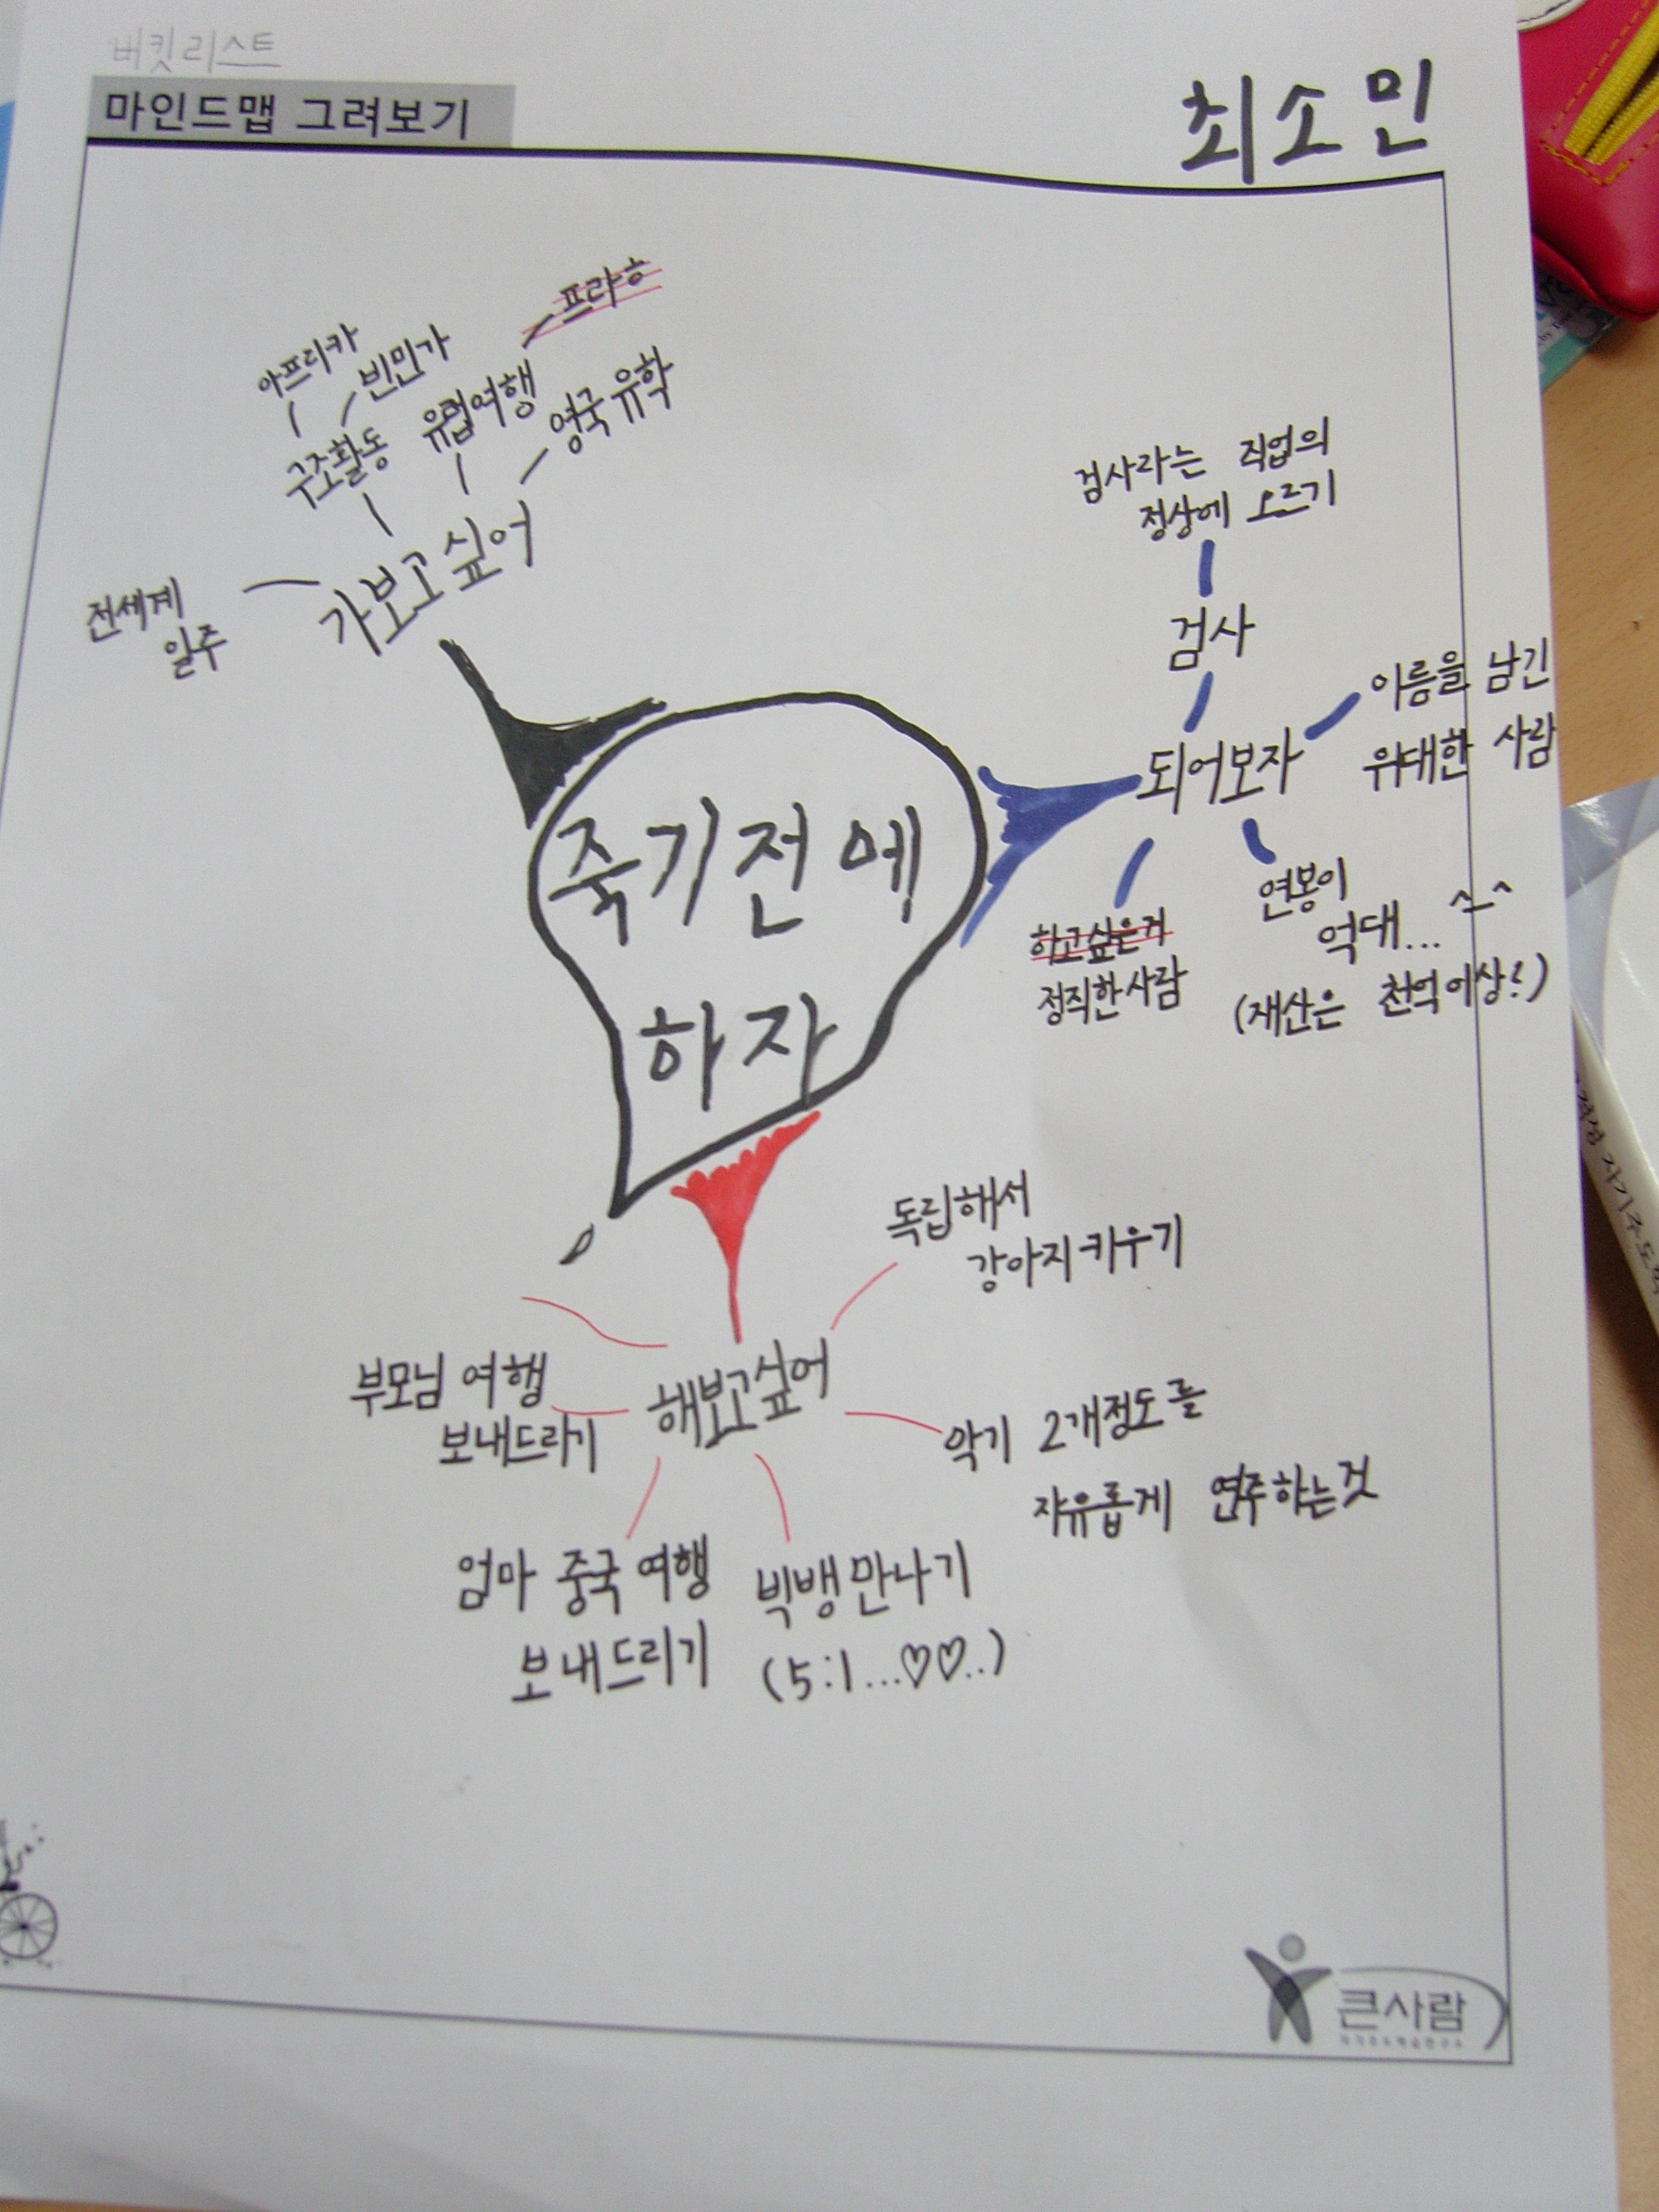 버킷리스트
마인드맵 그려보기
최소민
프라하
아프리카
빈민가
구조활동
유럽여행
영국유학
가보고싶어
전세계
일주
검사라는 직업의
정상에 오르기
검사
되어보자
이름을 남긴
위대한 사람
연봉이
억대... ^-^
(재산은 천억이상!)
하고싶은거
정직한사람
죽기전에
하자
독립해서
강아지키우기
해보고싶어
부모님 여행
보내드리기
악기 2개정도를
자유롭게 연주하는것
엄마 중국여행
보내드리기
빅뱅만나기
(5:1...♡♡..)
큰사람